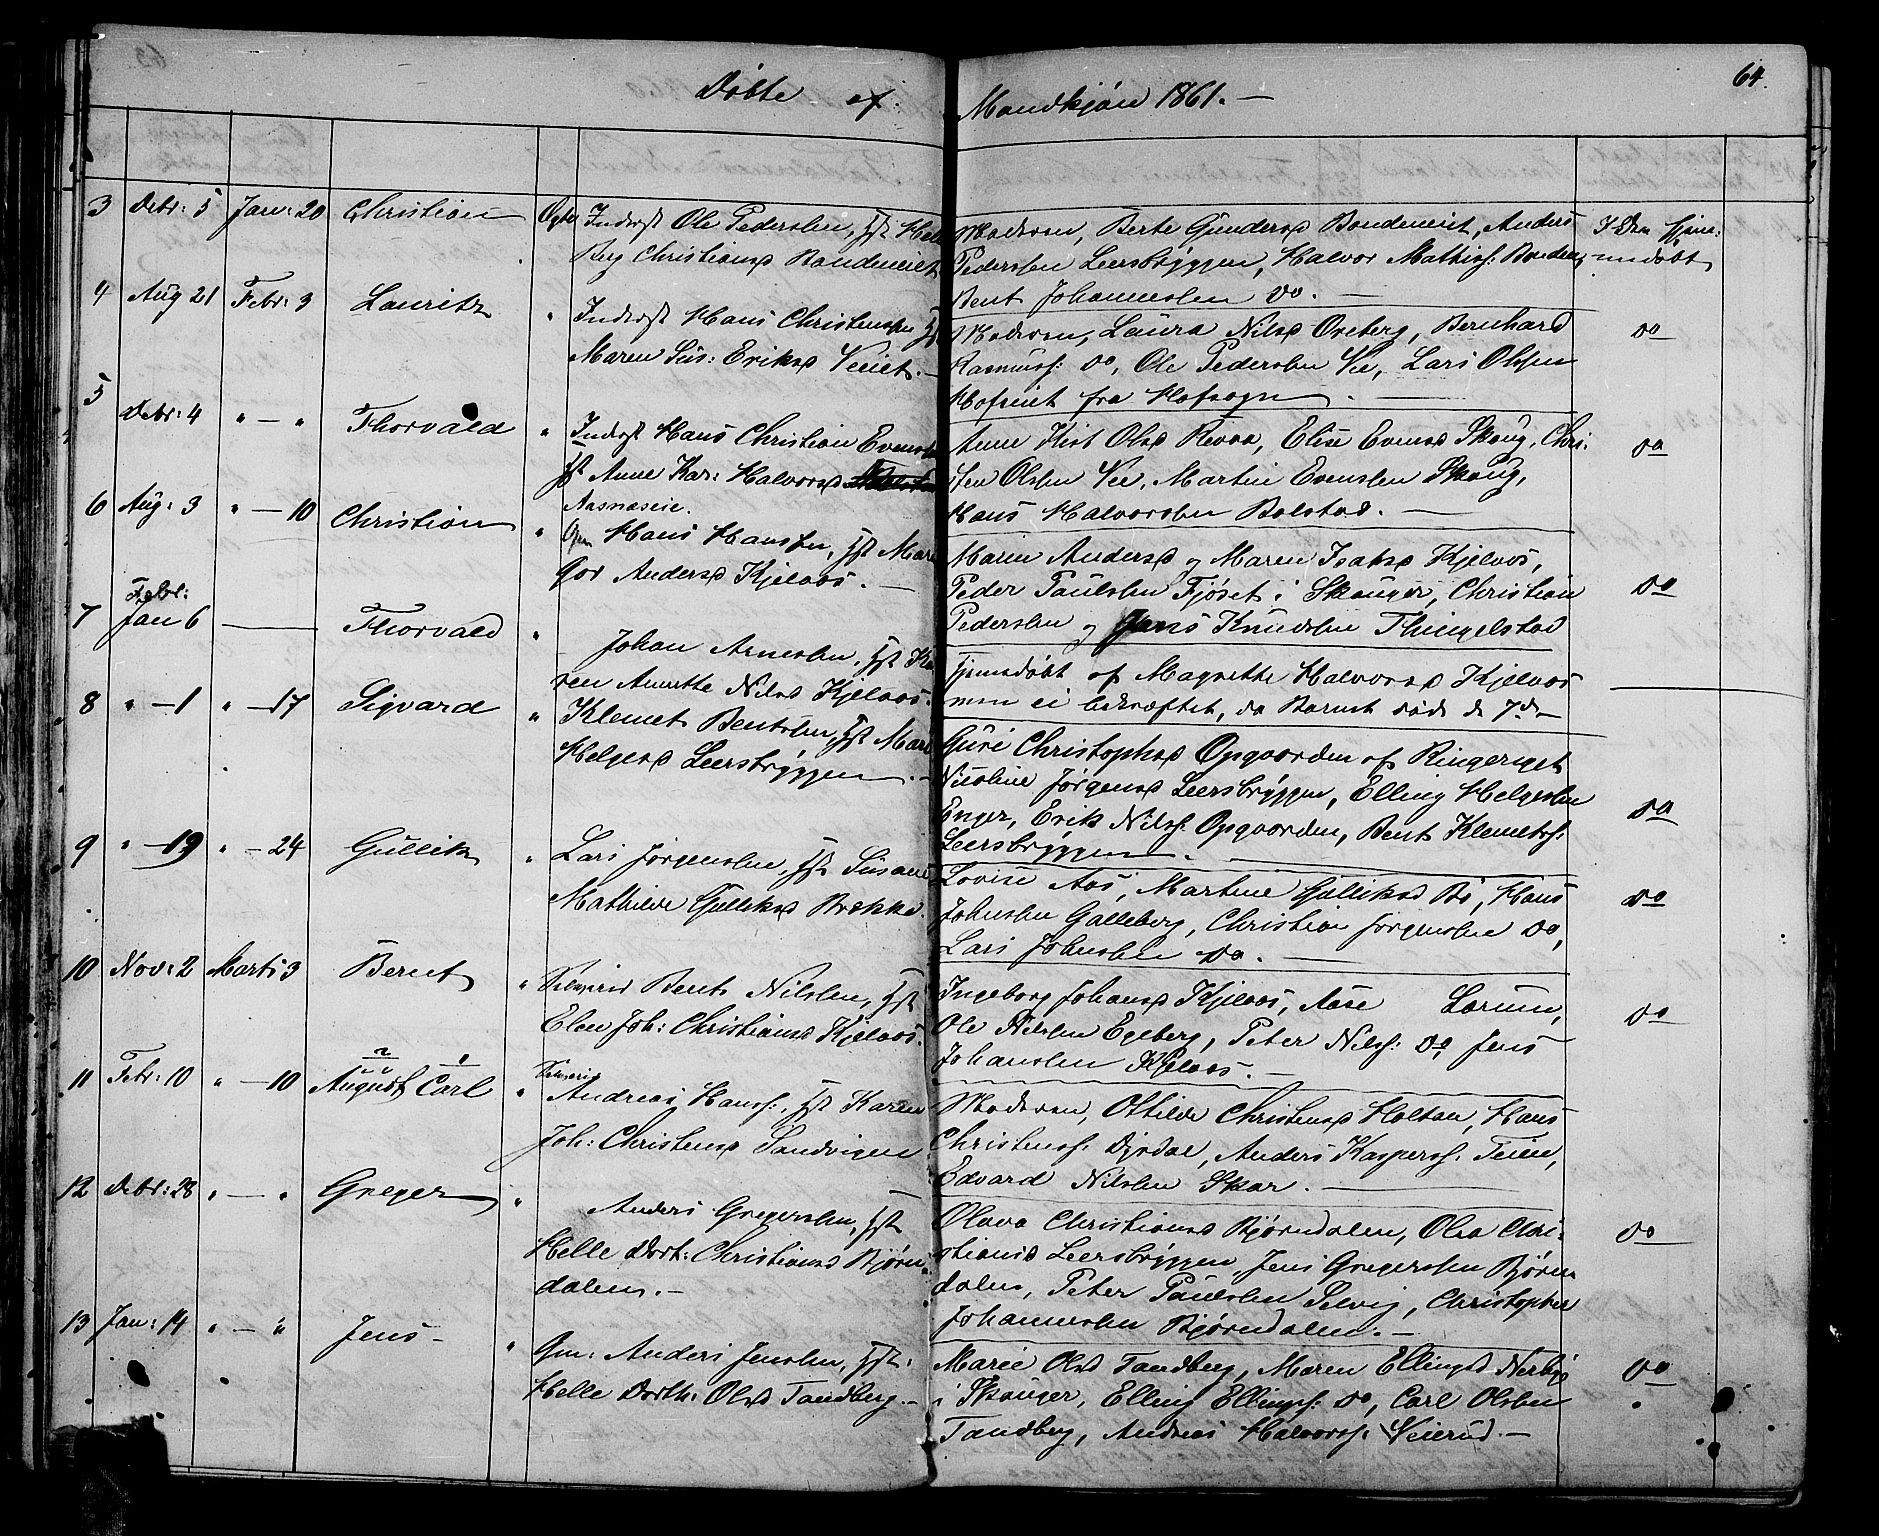 64.
Døbte af Mandkjøn 1861. —
3 Debr: 5 Jan: 20 Christian Ægte Inderst Ole Pederssen, Hst Helle
Berg Christiansd Bondeneiet
Moderen, Berte Gundersd Bondeneiet, Anders
Pederssen Leersbryggen, Halvor Mathiss: Bonden,
Bent Johannessen Do. —
I Dr. Hjem:
medøbt
4 Aug 21 Febr: 3 Lauritz " Inderst Hans Christenssen Hst
Maren Sus: Eriksd Veiet. —
Moderen, Laura Nilsd Overberg, Bernhard
Rasmuss: Do, Ole Pederssen Vee, Lars Olssen
Hofseiet fra Hofsogn. —
Do
5 Debr: 4 " — " Thorvald " Inderst Hans Christian Evenssen
Hst Anne Kar: Halvorsd
Aasnæseie.
Anne Kist Olsd Revaa, Elise Evensd Skoug, Chri-
sten Olssen Vee, Martin Evenssen Skoug,
Hans Halvorssen Bolstad. —
Do
6 Aug: 3 " — 10 Christian " Gm Hans Hanssen, Hst Maren
Gor Andersd Kjelaas. —
Maren Andersd og Maren Isaksd Kjelaas,
Peder Paulssen Fjøset i Skouger, Christian
Pederssen og Jens Knudssen Thingelstad
Do
7 Febr:
Jan 6 — Thorvald " Johan Arnessen, Hst Ka-
ren Annette Nilsd Kjelaas.
Hjemmedøbt af Magnette Halvorsd Kjelaas
men ei bekræftet, da Barnet døde d 7d —
8 " — 1 " — 17 Sigvard " Klemet Bentssen, Hst Maren
Helgesd Leersbryggen. —
Guri Christophsd Opgaarden af Ringeriget
Nicoline Jørgensd Leersbryggen, Elling Helgessen
Enger, Erik Nilss: Opgaarden, Bent Klemetss:
Leersbryggen. —
Do
9 " — 19 " — 24 Gullik " Lars Jørgenssen, Hst Susane
Mathilde Gulliksd Brække.
Lovise Aas, Martine Gulliksd Bø, Hans
Johnssen Galleberg, Christian Jørgenssen Do,
Lars Johnssen Do. —
Do
10 Nov: 2 Marts 3 Bernt " Selveier Bent Nilssen, Hst
Elen Joh: Christiansd Kjelaas.
Ingeborg Johansd Kjelaas, Aase Lorum,
Ole Nilssen Egeberg, Peter Nilss: Do, Jens
Johanssen Kjelaas. —
Do
11 Febr: 10 " — 10 August Carl " Selveier
Andreas Hanss:, Hst Karen
Joh: Christensd Sandvigen
Moderen, Ottilde Christensd Holtan, Hans
Christenss: Dyrdal, Anders Kasperss: Teien,
Edvard Nilssen Skar. —
12 Debr: 28 " — " Greger " Anders Gregerssen, Hst
Helle Dort: Christiansd Bjørn-
dalen. —
Olava Christiansd Bjørndalen, Olea Chri-
stiansd Leersbryggen, Jens Gregerssen Bjørn-
dalen, Peter Paulssen Selvig, Christopher
Johannessen Bjørndalen. —
Do
13 Jan: 14 " — " Jens — " Gm: Anders Jenssen, Hst:
Helle Dorth: Olsd Tandberg. —
Marie Olsd Tandberg, Maren Ellingsd Nerby
i Skouger, Elling Ellingss: Do, Carl Olssen
Tandberg, Andreas Halvorss: Veierud. —
Do